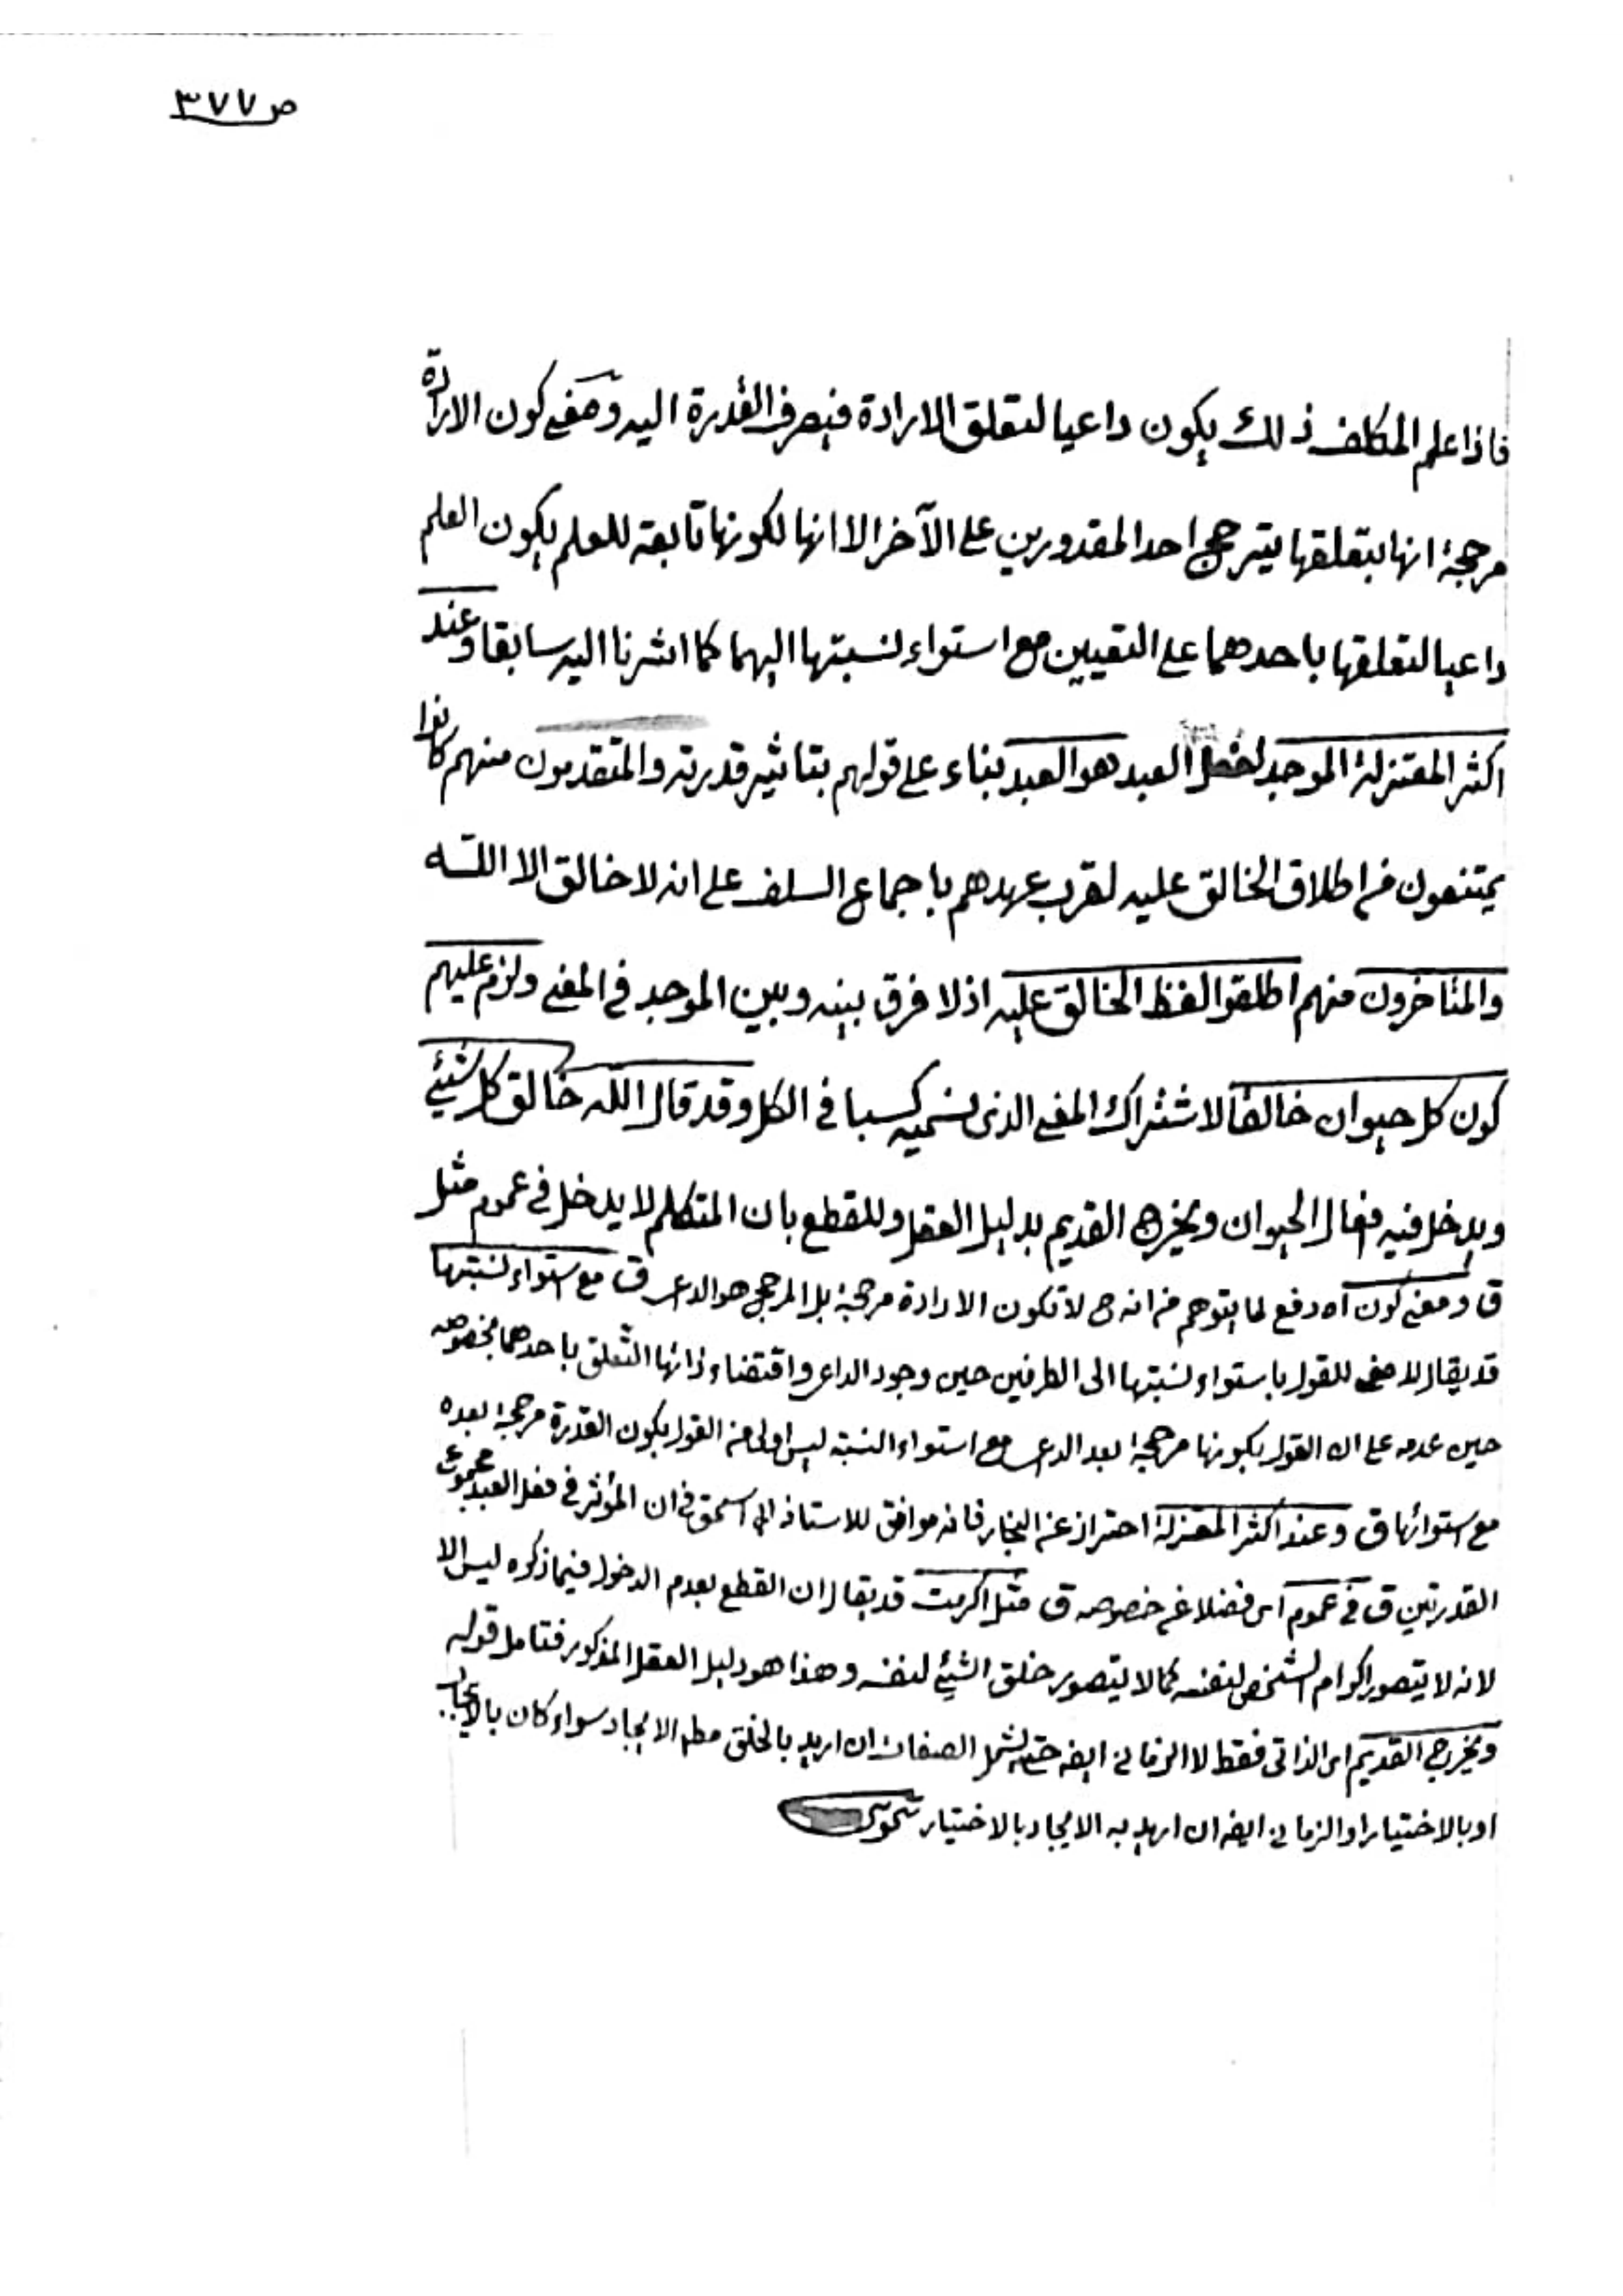 ص ٣٧٧
فاذا علم المكلف ذلك يكون داعيا لتعلق الارادة فيصرف القدرة اليه ومعنى كون الارادة
مرجحة انها بتعلقها يترجح احد المقدورين على الآخر الا انها لكونها تابعة للعلم يكون العلم
داعيا لتعلقها باحدهما على التعيين مع استواء نسبتها اليهما كما اشرنا اليه سابقا وعند
اكثر المعتزلة الموجد لفعل العبد هو العبد بناء على قولهم بتاثير قدرته والمتقدمون منهم كانوا
يمتنعون من اطلاق الخالق عليه لقرب عهدهم باجماع السلف على انه لا خالق الا اللّه
والمتاخرون منهم اطلقوا لفظ الخالق عليه اذ لا فرق بينه وبين الموجد في المعنى ولزم عليهم
كون كل حيوان خالقا لاشتراك المعنى الذي نسميه كسبا في الكل وقد قال اللّه خالق كل شيئ
ويدخل فيه فعال الحيوان ويخرج القديم بدليل العقل وللقطع بان المتكلم لا يدخل في عموم مثل
ق ومعنى كون اه دفع لما يتوهم من انه ح لا تكون الارادة مرجحة بل المرجح هو الداعي ق مع استواء نسبتها
قد يقال لا معنى للقول باستواء نسبتها الى الطرفين حين وجود الداعي واقتضاء ذاتها التّعلق باحدهما بخصوصه
حين عدمه على ان القول بكونها مرجحة بعد الداعي مع استواء النسبة ليس اولى من القول بكون القدرة مرجحة بعده
مع استوائها ق وعند اكثر المعتزلة احتراز عن النجار فانه موافق للاستاذ ابي اسحق في ان المؤثر في فعل العبد مجموع
القدرتين ق في عموم اى فضلا عن خصوصه ق مثل اكرمت قد يقال ان القطع بعدم الدخول فيما ذكره ليس الا
لانه لا يتصور اكرام الشخص لنفسه كما لا يتصور خلق الشيئ لنفسه وهذا هو دليل العقل المذكور فتامل قوله
ويخرج القديم اى الذاتى فقط لا الزمانى ايضه حتى يشمل الصفات ان اريد بالخلق مطه الايجاد سواء كان بالايجاب
او بالاختيار او الزمانى ايضه ان اريد به الايجاد بالاختيار